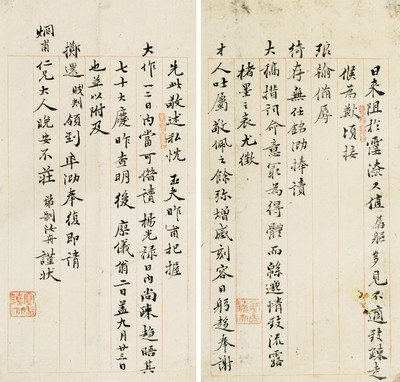 日来阻於霪潦又值賤軀多見不適致疎走
候為歉頃接
琅翰備辱
綺存無任銘泐捧讀
大稿措詞命意最為得體而餘邊情致流露
楮墨之表尤徵
才人吐屬敬佩之餘弥增感刻容日躬趨奉謝
先此敬述私忱 玉夫昨甫把握
大作一二日內當可借讀 楊光祿日內尚疎趨晤其
七十大慶昨查明後 儀甫二日蓋九月廿三日
也並以附及
擲還 賤刺領到率泐奉復即請
烱甫仁兄大人晚安不莊 弟制汝舟謹狀